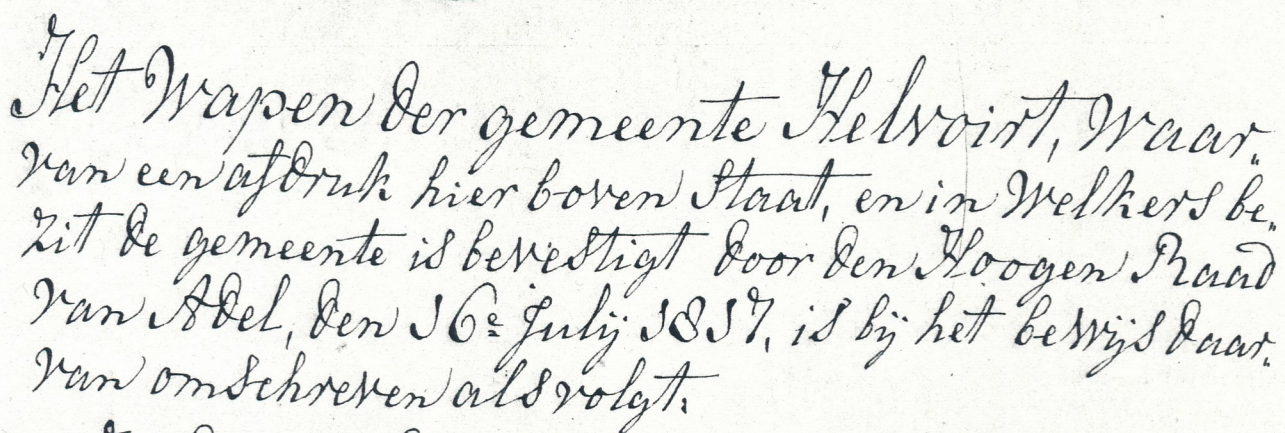 Het Wapen der gemeente Helvoirt, Waar„
van een afdruk hier boven Staat, en in Welkers be„
zit de gemeente is bevestigt door den Hoogen Raad
van Adel, den 16e July 1817, is bij het bewijs daar„
van omschreven als volgt: